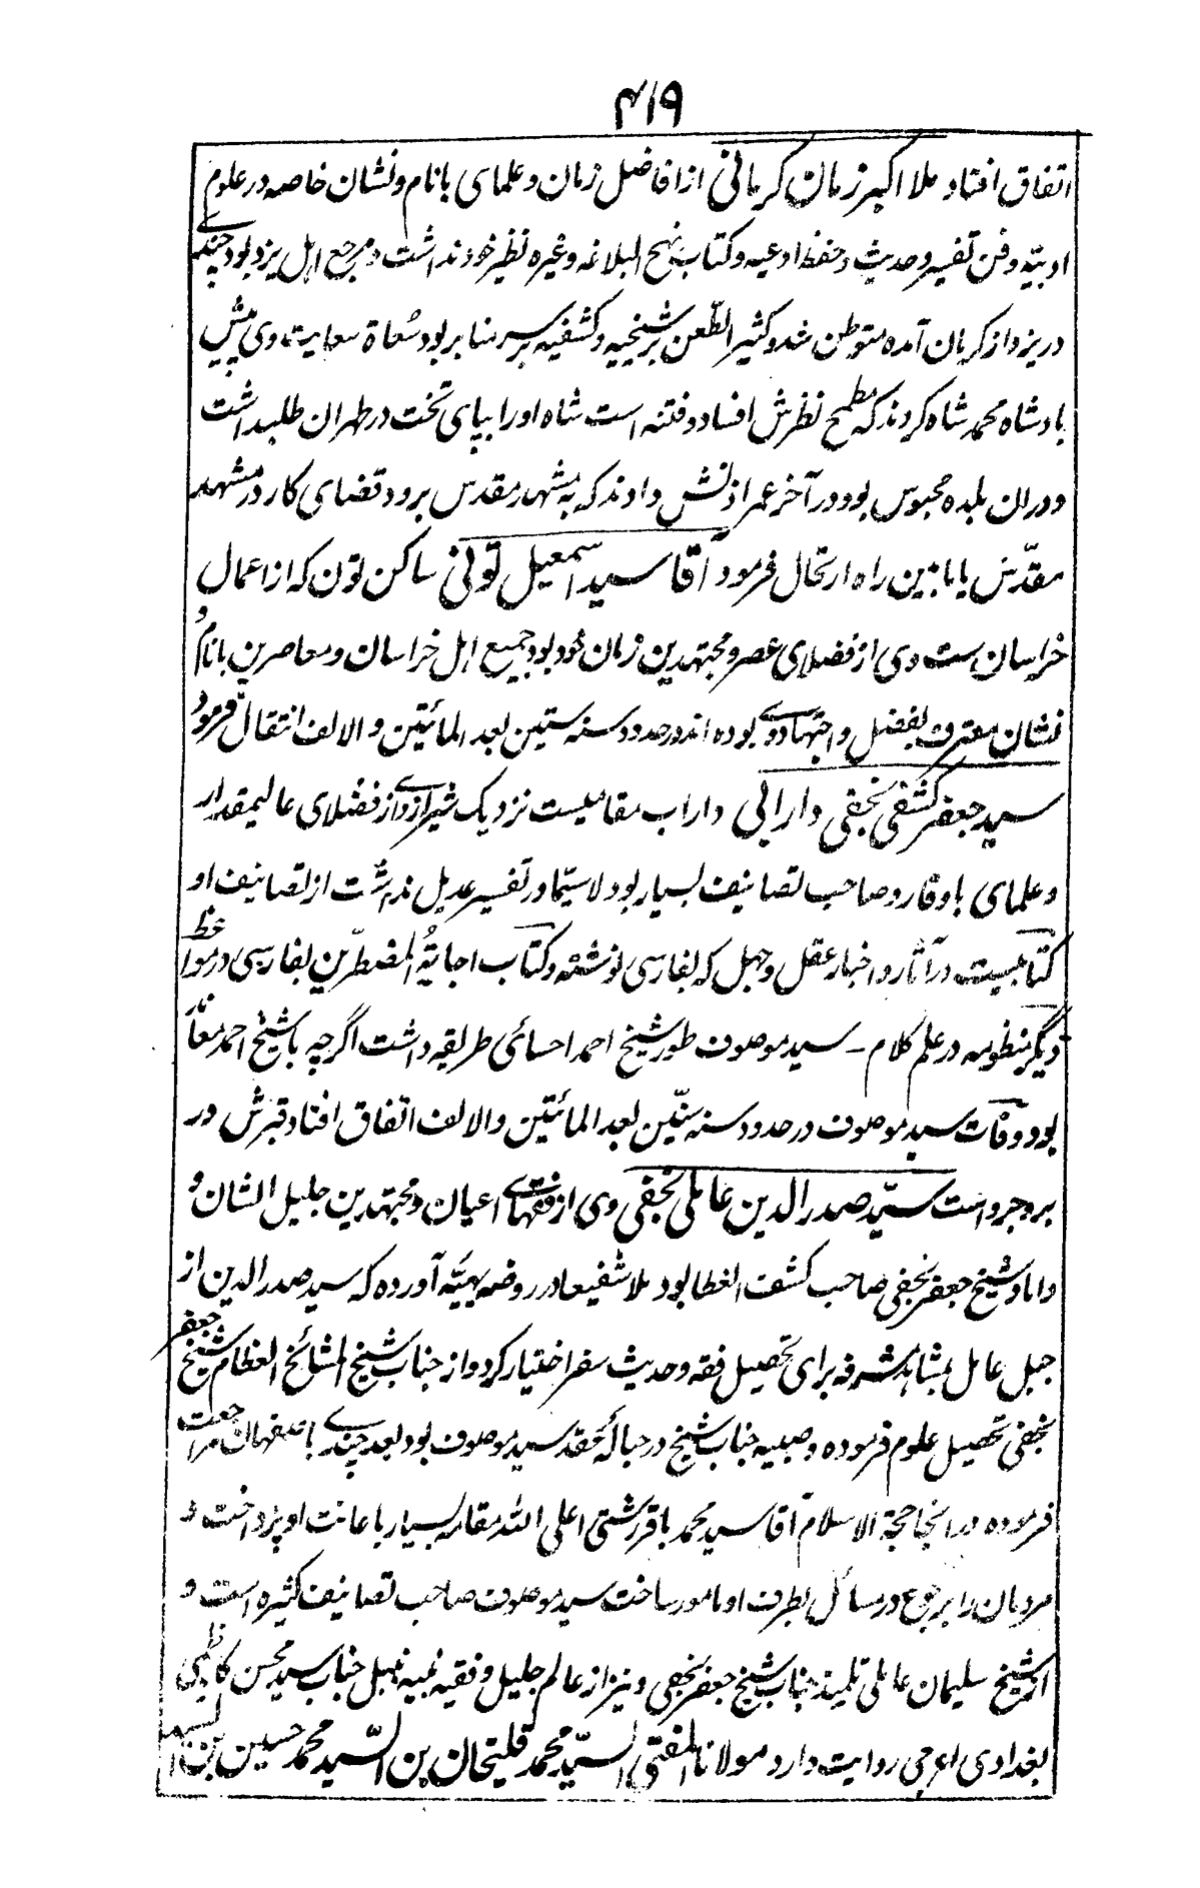 ۴۱۹
اتفاق افتاد ملا اکبر زمان کرمانی از افاضل زمان و علمای بانام و نشان خاصه در علوم
ادبیّه و فن تفسیر و حدیث و حفظ ادعیه و کتاب نهج البلاغه و غیره نظیر خود نداشت و مرجع اهل یزد بود چندے
در یزد از کرمان آمده متوطن شد و کثیر الطّعن بر شیخیه و کشفیه بر سر منابر بود سُعاة سعایت وی پیش
بادشاه محمد شاه کردند که مطمح نظرش افساد و فتنه است شاه اورا بپای تخت در طهران طلبداشت
و دران بلده محبوس بود و در آخر عمر اذنش دادند که به مشهد مقدس برود قضای کار در مشهد
مقدّس یا مابین راه ارتحال فرمود آقا سید اسمعیل تونی ساکن تون که از اعمال
خراسان ست وی از فضلای عصر و مجتهدین زمان خود بود جمیع اهل خراسان و معاصرین بانام و
نشان معترف بفضل و اجتهاد وے بوده اند در حدود سنه ستین بعد المائتین و الالف انتقال فرمود
سید جعفر کشفی نجفی دارابی داراب مقامیست نزدیک شیراز وے از فضلای عالیمقدار
و علمای باوقار و صاحب تصانیف بسیار بود لاسیّما در تفسیر عدیل نداشت از تصانیف او
کتابیست در آثار و اخبار عقل و جهل که بفارسی نوشته و کتاب اجابةُ المضطرّین بفارسی در مواعظ
دیگر منظومه در علم کلام ـ سید موصوف طور شیخ احمد احسائی طریقه داشت اگرچه با شیخ احمد معاند
بود وفات سید موصوف در حدود سنه ستّین بعد المائتین والالف اتفاق افتاد قبرش در
بروجرد است سیّد صدر الدین عاملی نجفی وی از فقهاے اعیان و مجتهدین جلیل الشان و
داماد شیخ جعفر نجفی صاحب کشف الغطا بود ملا شفیعا در روضه بهیّه آورده که سید صدر الدین از
جبل عامل بمشاهد مشرفه برای تحصیل فقه و حدیث سفر اختیار کرد و از جناب شیخ المشائخ العظام شیخ جعفر
نجفی تحصیل علوم فرموده و صبیه جناب شیخ در حبالۀ عقد سید موصوف بود بعد چندے باصفهان مراجعت
فرموده در انجا حجة الاسلام آقا سید محمد باقر رشتی اعلی الله مقامه بسیار باعانت او پرداخت و
مردمان را برجوع در مسائل بطرف او مامور ساخت سید موصوف صاحب تصانیف کثیره است و
از شیخ سلیمان عاملی تلمیذ جناب شیخ جعفر نجفی و نیز از عالم جلیل و فقیه نبیه نبیل جناب سید محسن کاظمی
بغدادی اعرجی روایت دارد مولانا المفتی السیّد محمد قلیخان بن السّید محمد حسین بن